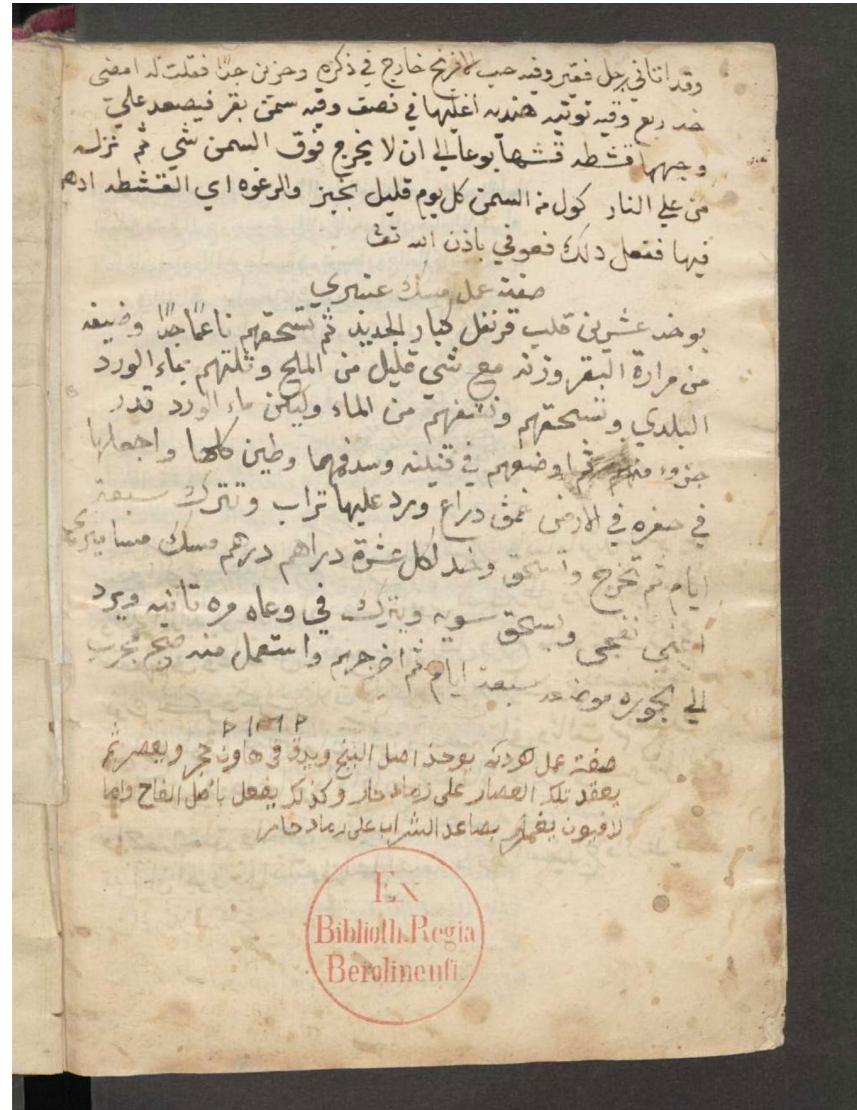 وقد اتاني رجل فقير وفيه حب الافرنج خارج في ذكره وحزن جدًا فقلت له امضى
خد ربع وقيه توتيه هنديه اغليها في نصف وقيه سمن بقر فيصعد علي
وجهها قشطه قشها بوعا الي ان لا يخرج فوق السمن شي ثم نزله
من علي النار كول من السمن كل يوم قليل بخبز والرغوه اي القشطه ادهن
فيها ففعل دلك فعوفي باذن الله تعا
صفة عمل مسك عنبري
يوخد عشرين قلب قرنفل كبار الجديد ثم تسحقهم ناعمًا جدًا وضيفه
من مرارة البقر وزنه مع شي قليل من الملح وثلتهم بماء الورد
البلدي وتسحقهم ونشفهم من الماء وليكن ماء الورد قدر
جزوء منهم ثم اوضعهم في قنينه وسد فمها وطين كلها واجعلها
في حفره في الارض عمق دراع ورد عليها تراب وتترك سبعة
ايام ثم تخرج وتسحق وخد لكل عشرة دراهم درهم مسك
ويسحق سويه ويترك في وعاه مره تانيه ويرد
الي الجوره موضعه سبعة ايام ثم اخرجهم واستعمل منه صحيح مجرب
صفة عمل يوخذ اصل البنج ويدق في هاون حجر ويعصر ثم
يعقد تلك العصار على رماد حار وكذلك يفعل باصل الفاح واما
لافيون يصاعد الشراب على رماد حار
Ex
Biblioth. Regia
Berolinensi.